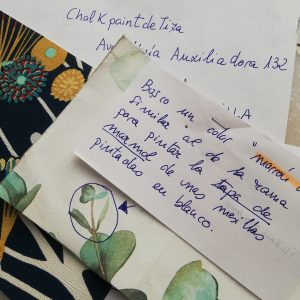 Chalkpaint de Tiza
Auxiliadora 132
Busco un color
similar al de la rama
para pintar la tapa de
marmol de unas mesillas
pintadas en blanco.